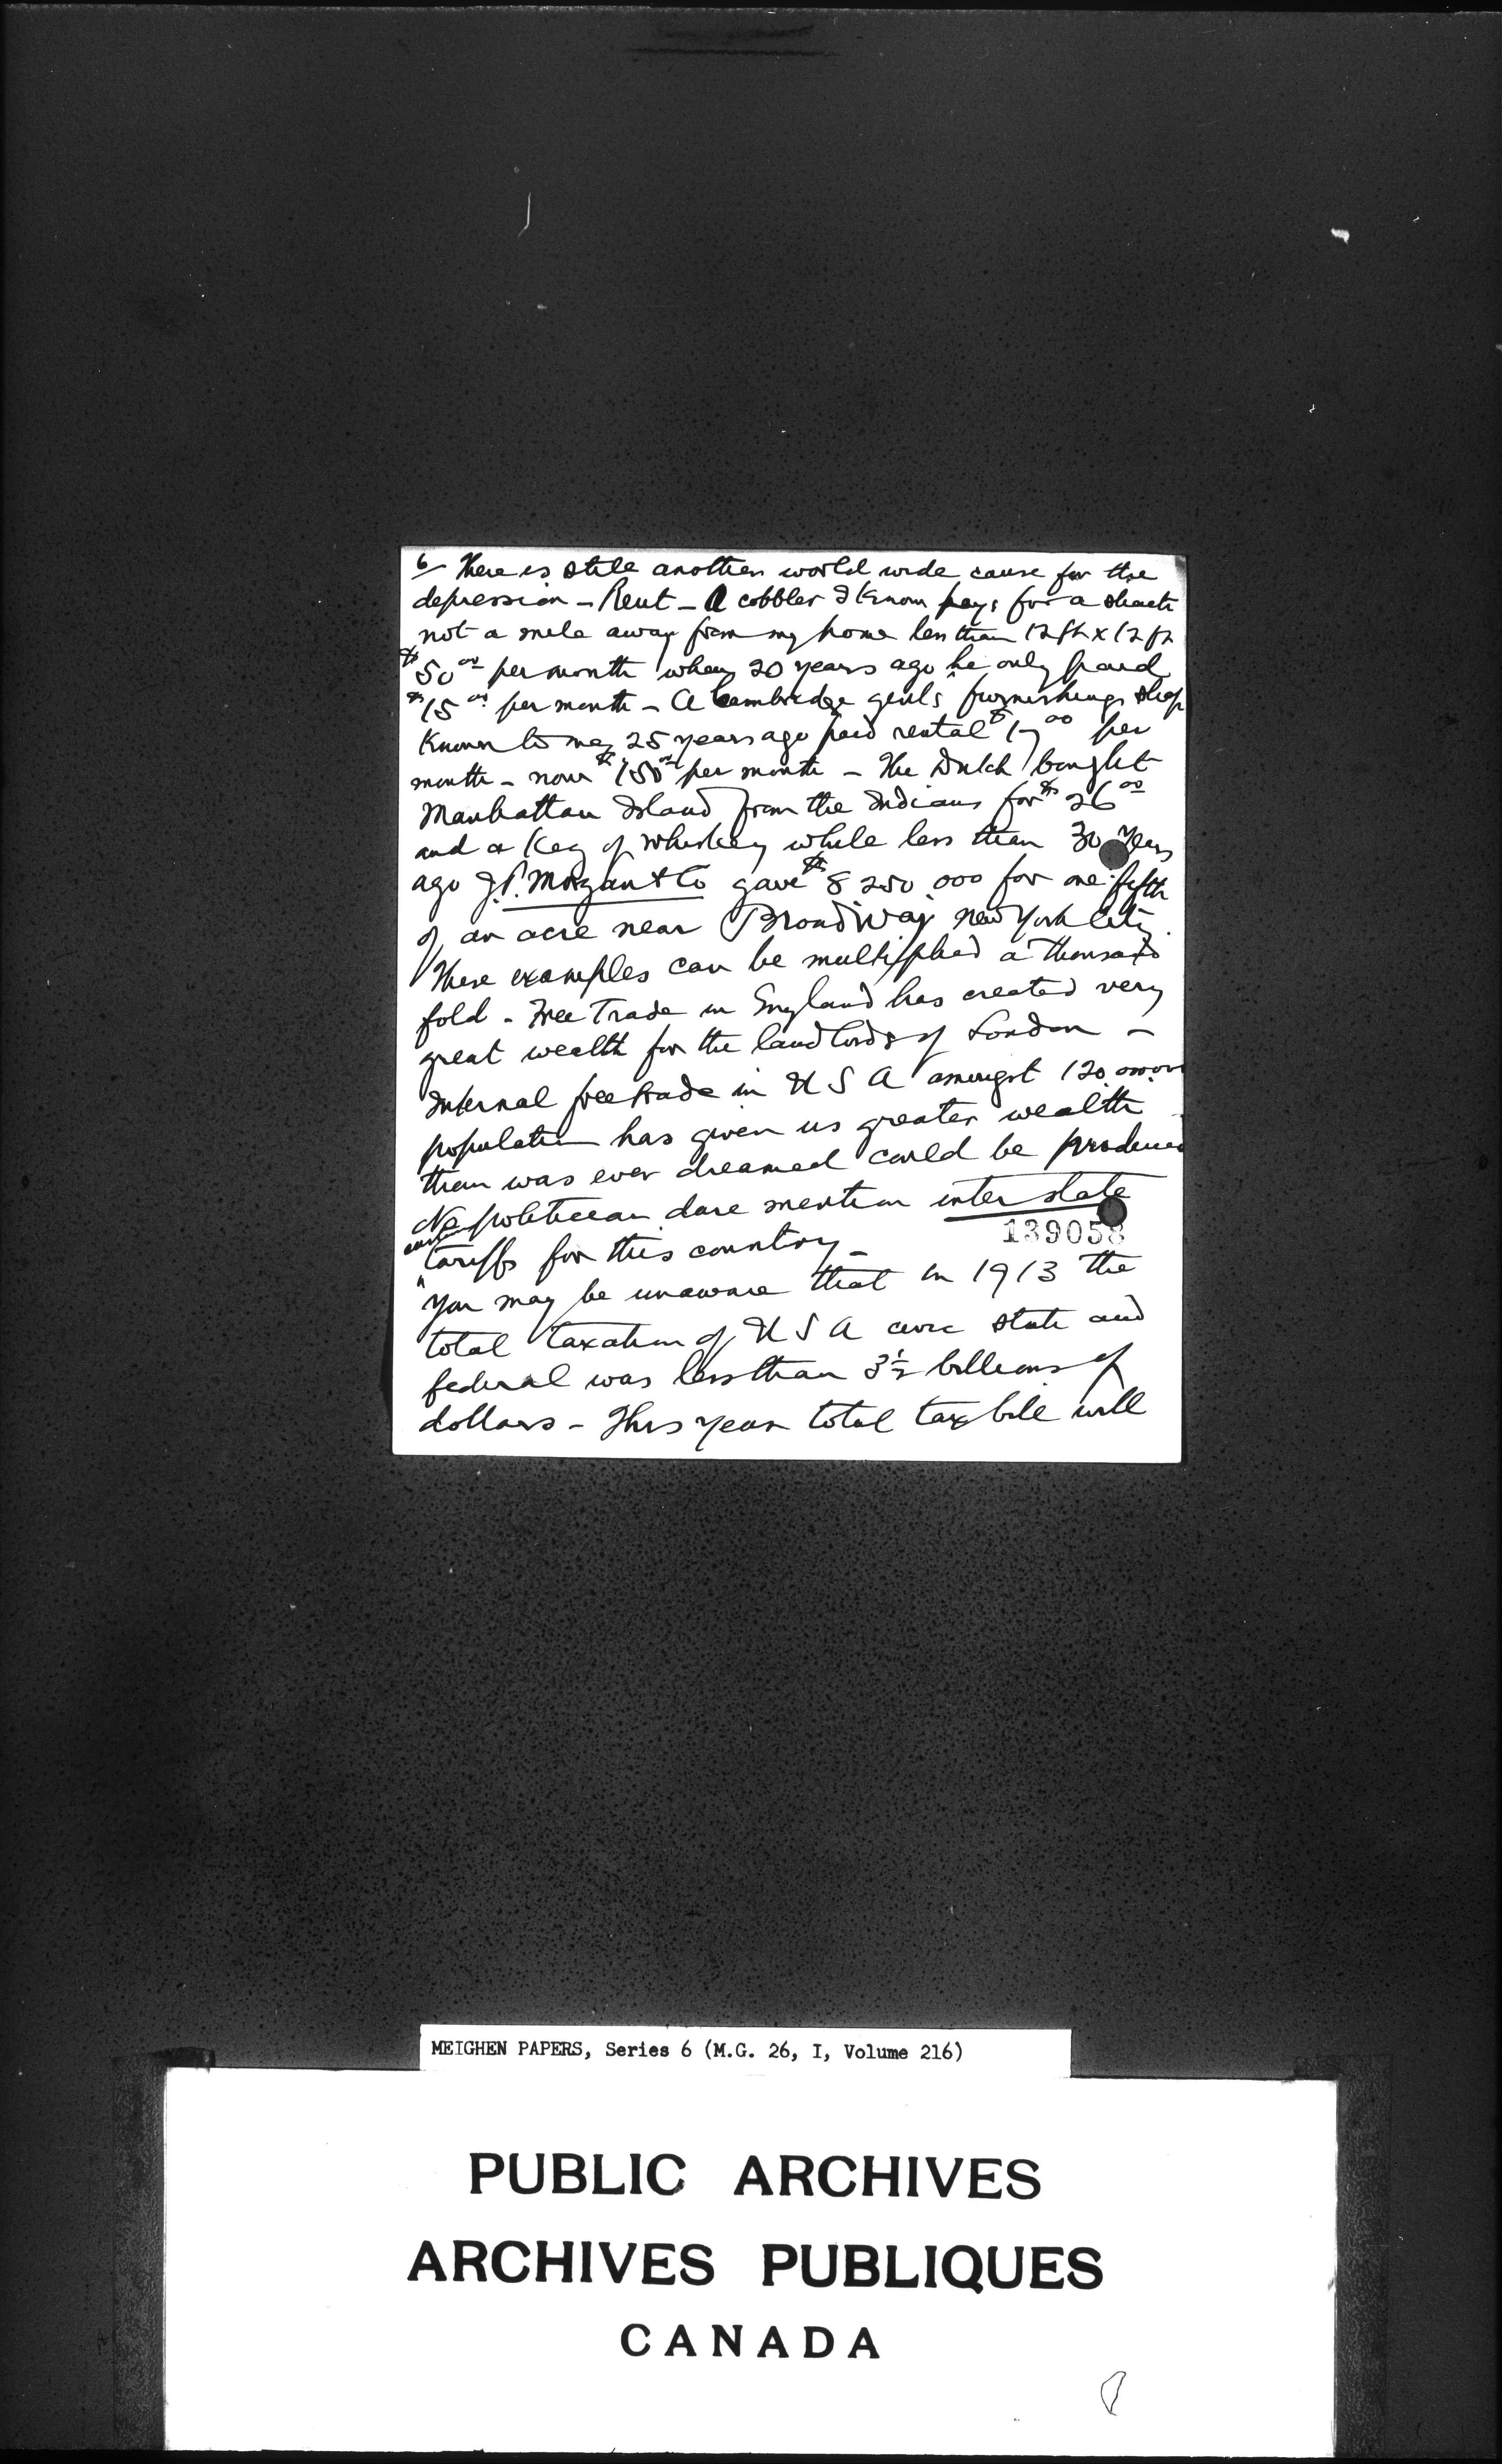 6 There is still another world wide cause for the
depression - Rent - A cobbler I know pays for a shack
not a mile away from my home less than 12 ft x 12 ft
$50.00 per month when 20 years ago he only paid
$15.00 per month - A Cambridge gents furnishings shop
known to me, 25 years ago paid rental $17.00 per
month - now $150.00 per month - The Dutch bought
Manhattan Island from the Indians for $26.00
and a Keg of Whiskey while less than 30 years
ago J.P. Morgan & Co gave $8 250 000 for one fifth
of an acre near Broadway New York City.
These examples can be multiplied a thousand
fold - Free Trade in England has created very
great wealth for the landlords of London -
Internal free trade in U S A amongst 120 000 000
population has given us greater wealth
than was ever dreamed could be produced
No politician dare mention inter state
tariffs for this country -
139058
You may be unaware that in 1913 the
total taxation of U S A civic state and
federal was less than 3½ billions of
dollars - This year total tax bill will
MEIGHEN PAPERS, Series 6 (M.G. 26, I, Volume 216)
PUBLIC ARCHIVES
ARCHIVES PUBLIQUES
CANADA